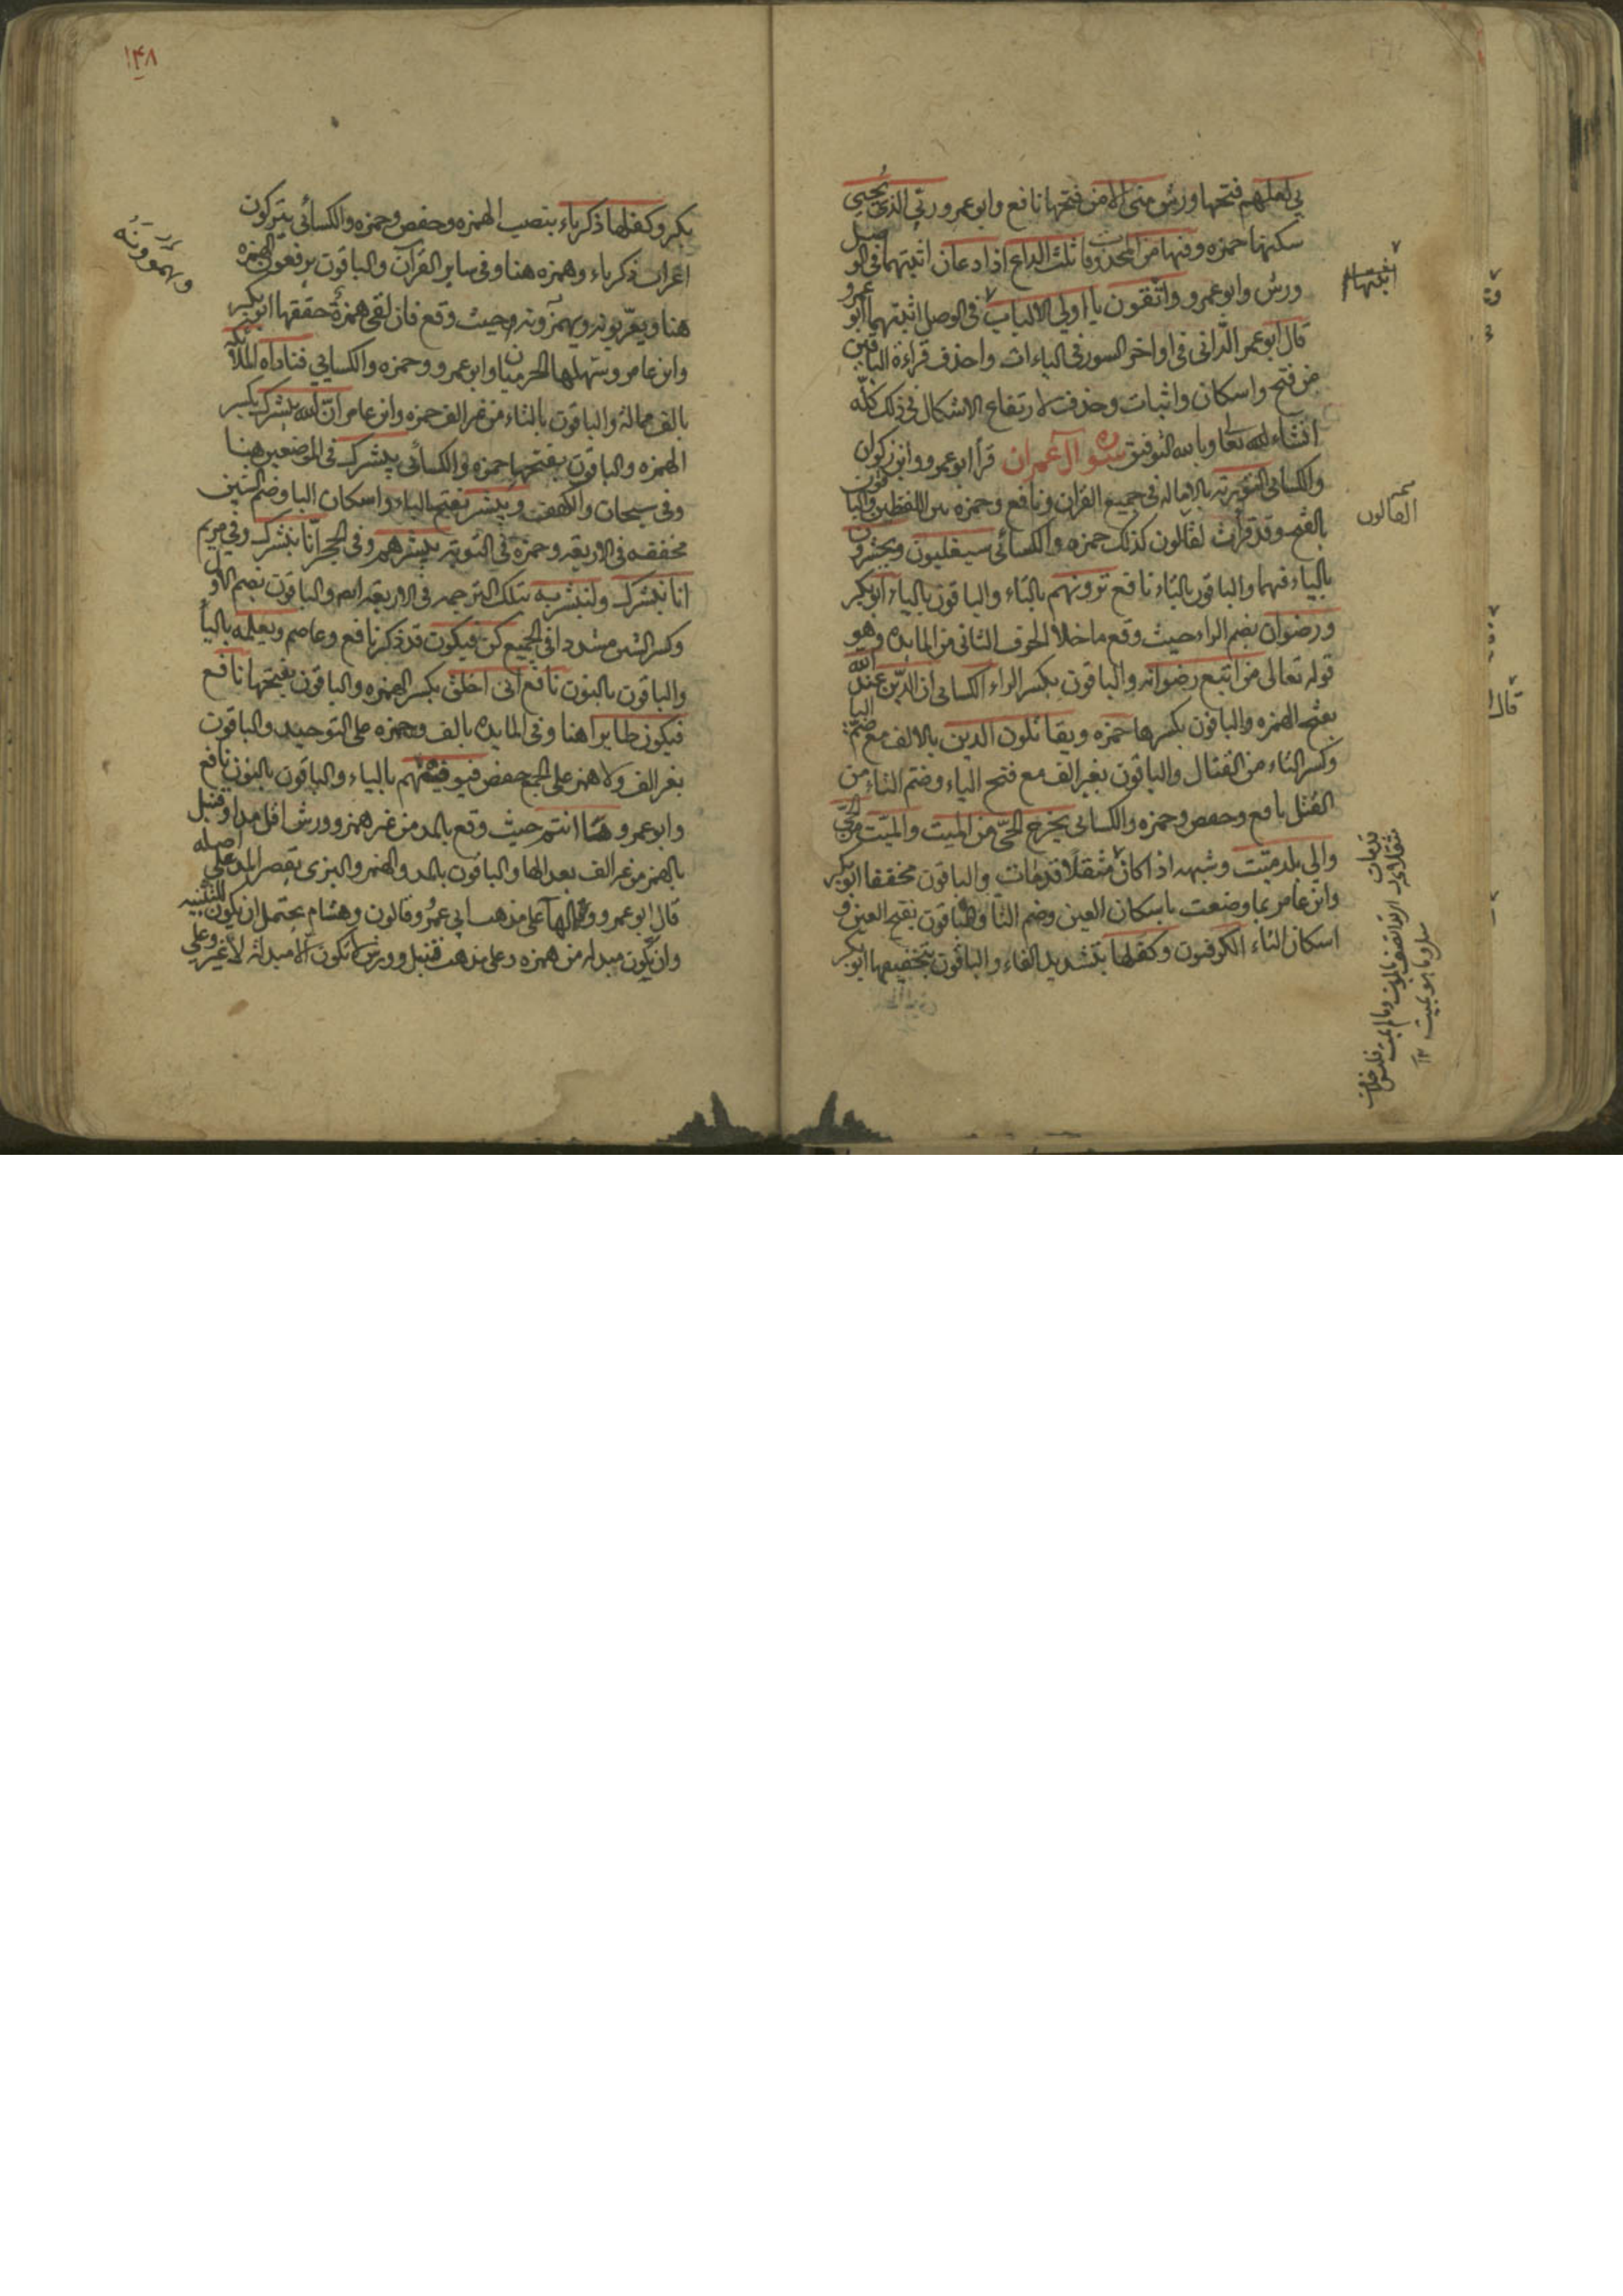 بي لعلهم فتحها ورش منى الامن فتحها نافع وابو عمرو ربّي الذي يُحيي
سكنها حمزه وفيها من المحذوفات ثلث الداع اذا دعان اثبتهما في الوصل
ورش وابو عمرو واتّقون يا اولي الالباب في الوصل اثبتهما ابو عمرو
قال ابو عمر الدّاني في اواخر السور في الياءات واحذف قراءة الباقين
من فتح واسكان واثبات وحذف لارتفاع الاشكال في ذلك كلّه
انشاء الله تعا وبالله التوفيق سورة آل عمران قرأ ابو عمرو وابن ذكوان
والكسائي التورية بالاماله في جميع القران ونافع وحمزه بين اللفظين والباقون
بالفتح وقد قرأت لقالون كذلك حمزه والكسائي سيغلبون ويحشرون
بالياء فيهما والباقون بالتاء نافع ترونهم بالتاء والباقون بالياء ابو بكر
ورضوان بضم الراء حيث وقع ماخلا الحرف الثاني من المايده وهو
قوله تعالى من اتبع رضوانه والباقون بكسر الراء الكسائي ان الدّين عند الله
بفتح الهمزه والباقون بكسرها حمزه ويقاتلون الذين بالالف مع ضمّ اليا
وكسر التاء من القتال والباقون بغير الف مع فتح الياء وضم التاء من
القتل نافع وحفص وحمزه والكسائي يخرج الحيّ من الميت والميّت من الحيّ
والي بلد ميّت وشبهه اذا كان مثقلا قد مات والباقون مخففا ابو بكر
وابن عامر بما وضعت باسكان العين وضم التا والباقون بفتح العين و
اسكان التاء الكوفيون وكفلها بتشديد الفاء والباقون بتخفيفها ابو بكر
اثبتها
القالون
قال
١٤٨
بكر وكفلها ذكرياء بنصب الهمزه وحفص وحمزه والكسائي يتركون
اعراب ذكرياء وهمزه هنا وفي ساير القرآن والباقون يرفعون الهمزه
هنا ويعربونه ويهمزونه حيث وقع فان لقى همزة حققها ابو بكر
وابن عامر وسهلها الحرميان وابو عمرو وحمزه والكسايي فناداه الملآئكة
بالف مماله والباقون بالتاء من غير الف حمزه وابن عامر انّ الله يبشرك بكسر
الهمزه والباقون بفتحها حمزه والكسائي يبشرك في الموضعين هنا
وفي سبحان والكهف ويبشر بفتح الياء واسكان البا وضم الشين
مخففه في الاربعه وحمزه في التوبه يبشرهم وفي الحجر انّا نبشرك وفي مريم
انا نبشرك ولتبشر به بتلك الترجمه في الاربعه ايضا والباقون بضم الاول
وكسر الشين مشددا في الجميع كن فيكون قد ذكر نافع وعاصم ويعلمه باليآ
والباقون بالنون نافع انى اخلق بكسر الهمزه والباقون بفتحها نافع
فيكون طايرا هنا وفي المايده بالف وهمزه على التوحيد والباقون
بغير الف ولا همز على الجمع حفص فيوفيهم بالياء والباقون بالنون نافع
وابو عمرو هآ انتم حيث وقع بالمد من غير همز وورش اقل مدا وقنبل
بالهمز من غير الف بعد الها والباقون بالمد والهمز والبزى بقصر المد على اصله
قال ابو عمرو والهآ على مذهب ابي عمرو وقالون وهشام يحتمل ان يكون للتنبيه
وان يكون مبدله من همزه وعلى مذهب قنبل وورش لا تكون الا مبدله لا غير وعلى